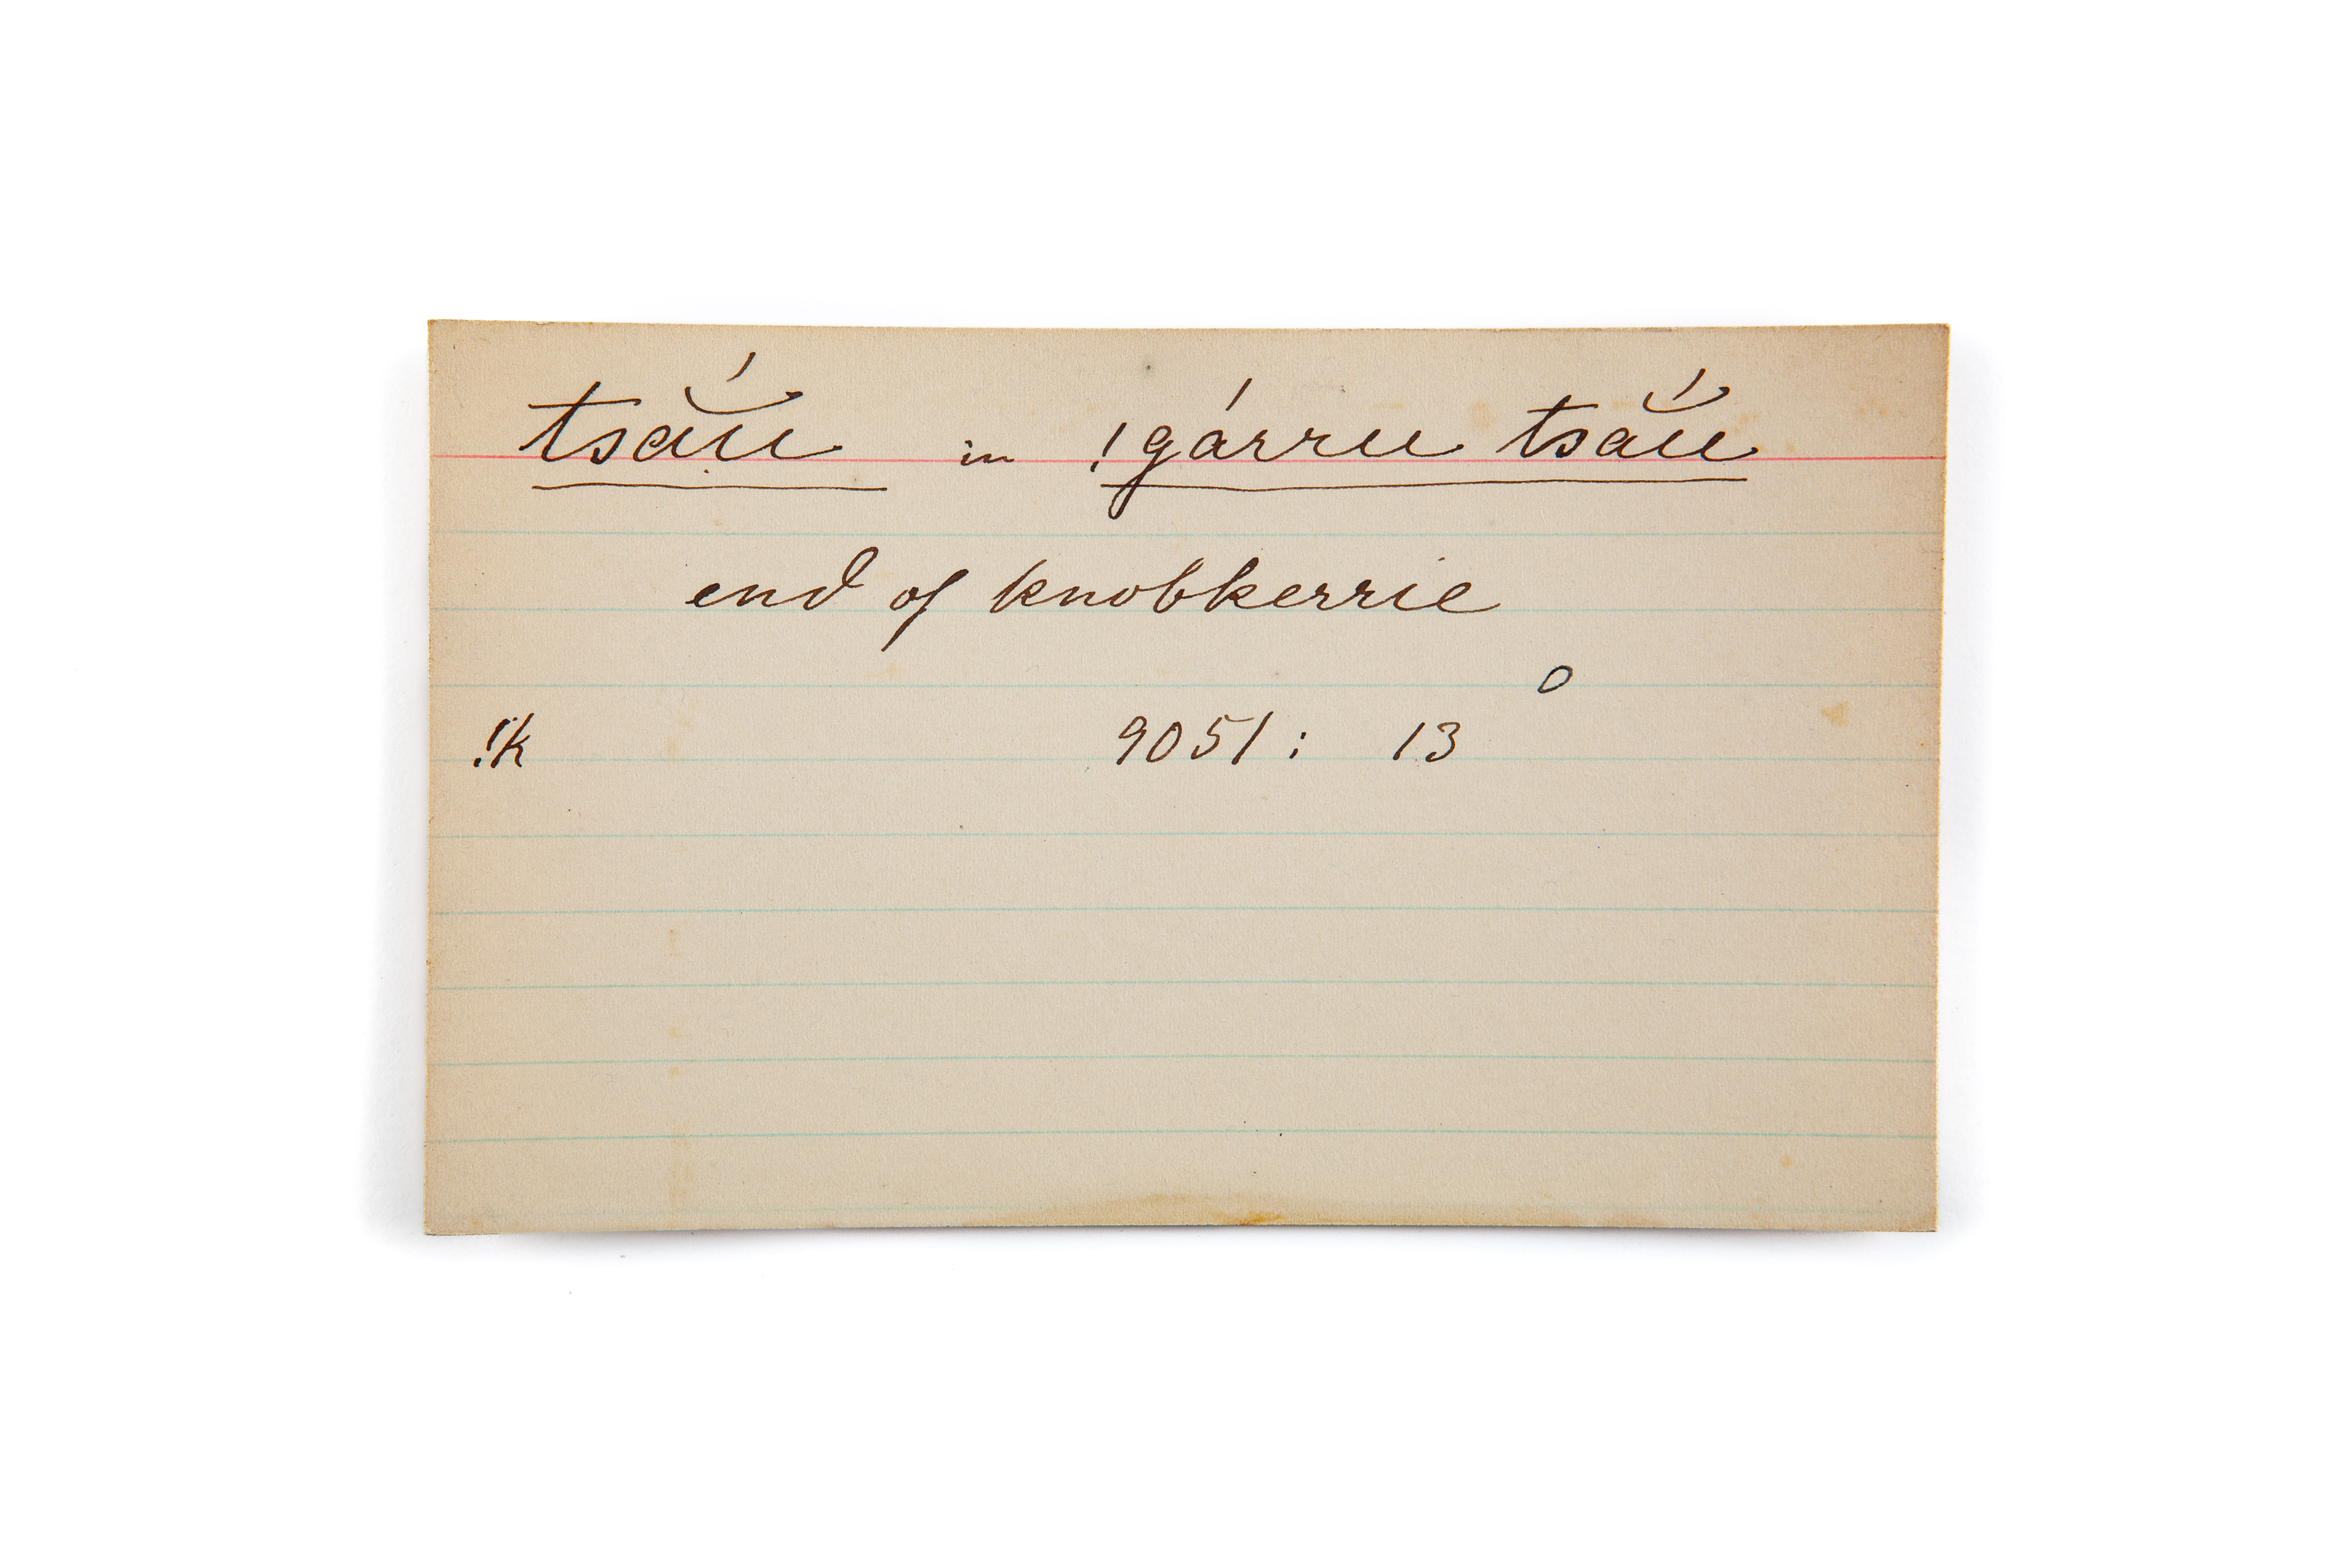 tsắu in !gárru tsắu
end of knobkerrie
o
!k 9051 : 13